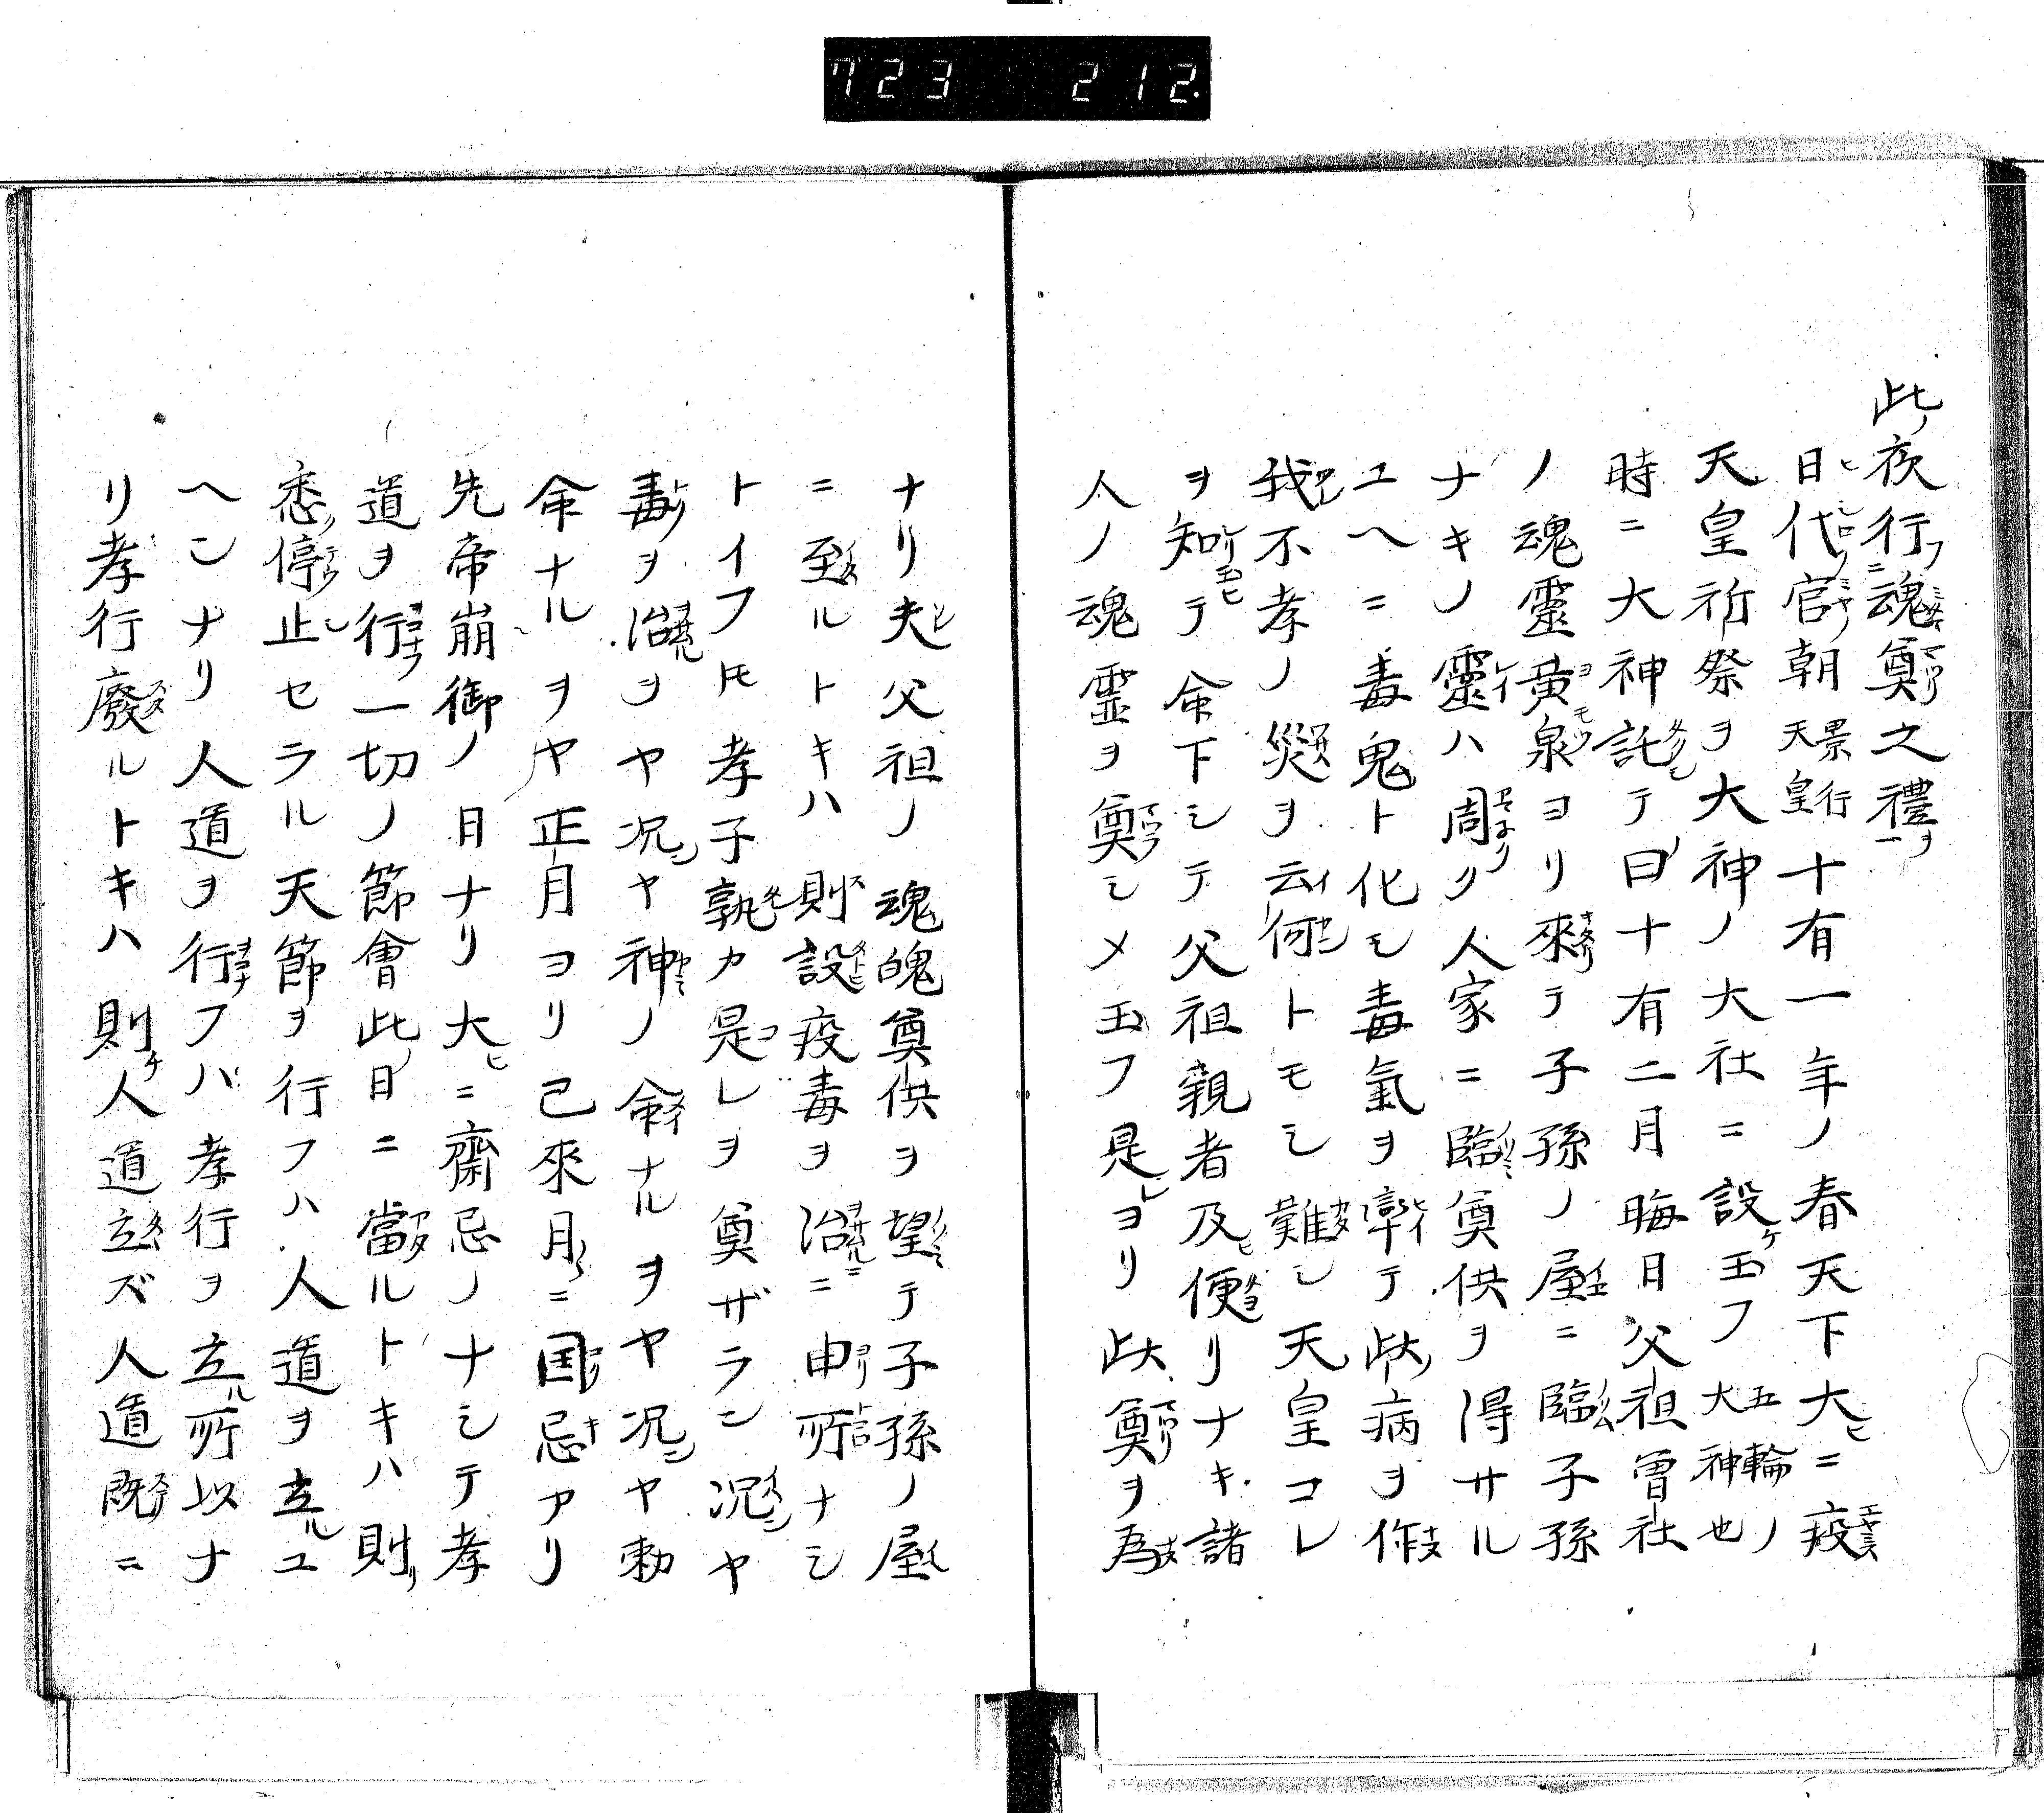 723 212
此夜行魂奠之禮
日代官朝 景行天皇 十有一年ノ春天下大ニ疫
天皇祈祭ヲ大神ノ大社ニ設玉フ 五輪ノ大神也
時ニ大神託テ曰十有二月晦日父祖曽社
ノ魂靈黄泉ヨリ來テ子孫ノ屋ニ臨子孫
ナキノ靈ハ周ク人家ニ臨奠供ヲ得サル
ユヘニ毒鬼ト化モ毒氣ヲ率テ此病ヲ作
我不孝ノ災ヲ云何トモシ難シ天皇コレ
ヲ知テ命下シテ父祖親者及便リナキ諸
人ノ魂霊ヲ奠シメ玉フ是ヨリ此奠ヲ為
ナリ夫父祖ノ魂魄奠供ヲ望テ子孫ノ屋
ニ至ルトキハ則設疫毒ヲ治ニ由所ナシ
トイフトモ孝子孰カ是レヲ奠ザラン况ヤ
毒ヲ治ヲヤ况ヤ神ノ命ナルヲヤ况ヤ勅
命ナルヲヤ正月ヨリ已來月ニ国忌アリ
先帝崩御ノ日ナリ大ニ齋忌ノナシテ孝
道ヲ行一切ノ節會此日ニ當ルトキハ則
悉停止セラル天節ヲ行フハ人道ヲ立ユ
ヘンナリ人道ヲ行フハ孝行ヲ立所以ナ
リ孝行廢ルトキハ則人道立ズ人道既ニ